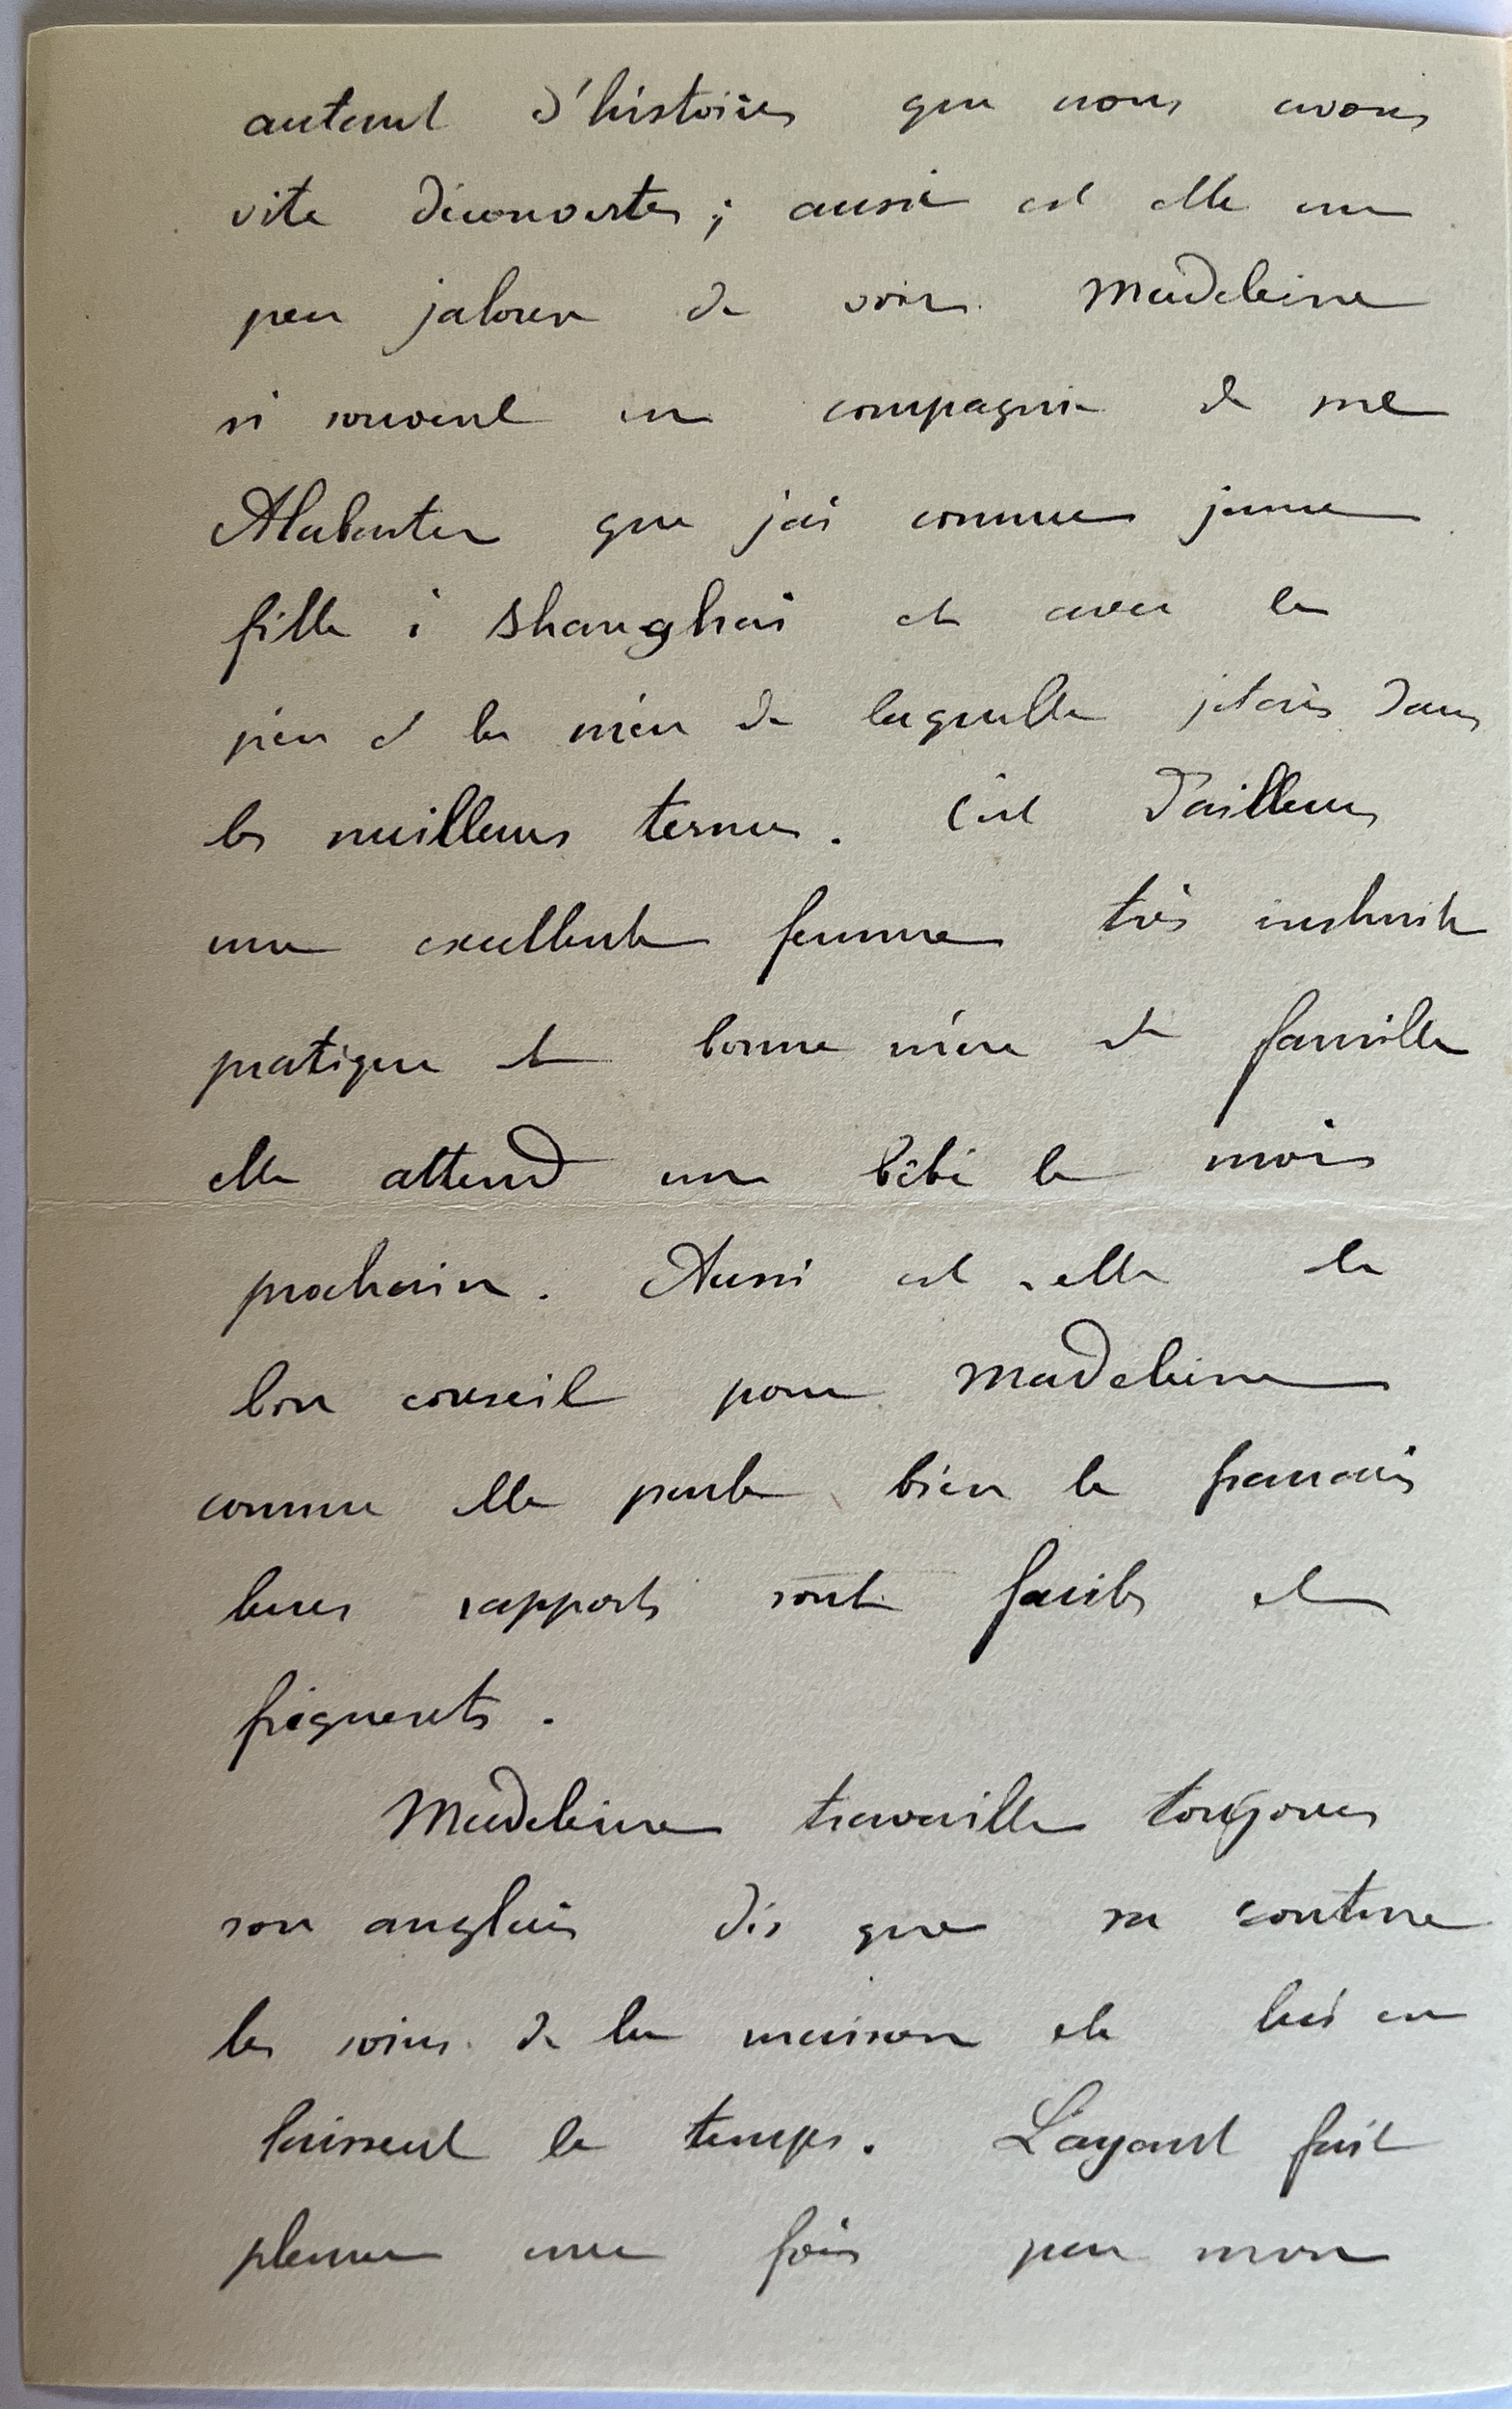 autant d'histoires que nous avons
vite découvertes ; aussi est elle un
peu jalouse de voir Madeleine
si souvent en compagnie de me
Alabaster que j'ai connue jeune
fille à Shanghai et avec le
père et la mère de laquelle j'étais dans
les meilleurs termes. C'est d'ailleurs
une excellente femme très instruite
pratique et bonne mère de famille
elle attend un bébé le mois
prochain. Aussi est-elle de
bon conseil pour Madeleine
comme elle parle bien le français
leurs rapports sont faciles et
fréquents.
Madeleine travaille toujours
son anglais dès que sa couture
les soins de la maison etc lui en
laissent le temps. Layard fait
pleurer une fois par mon